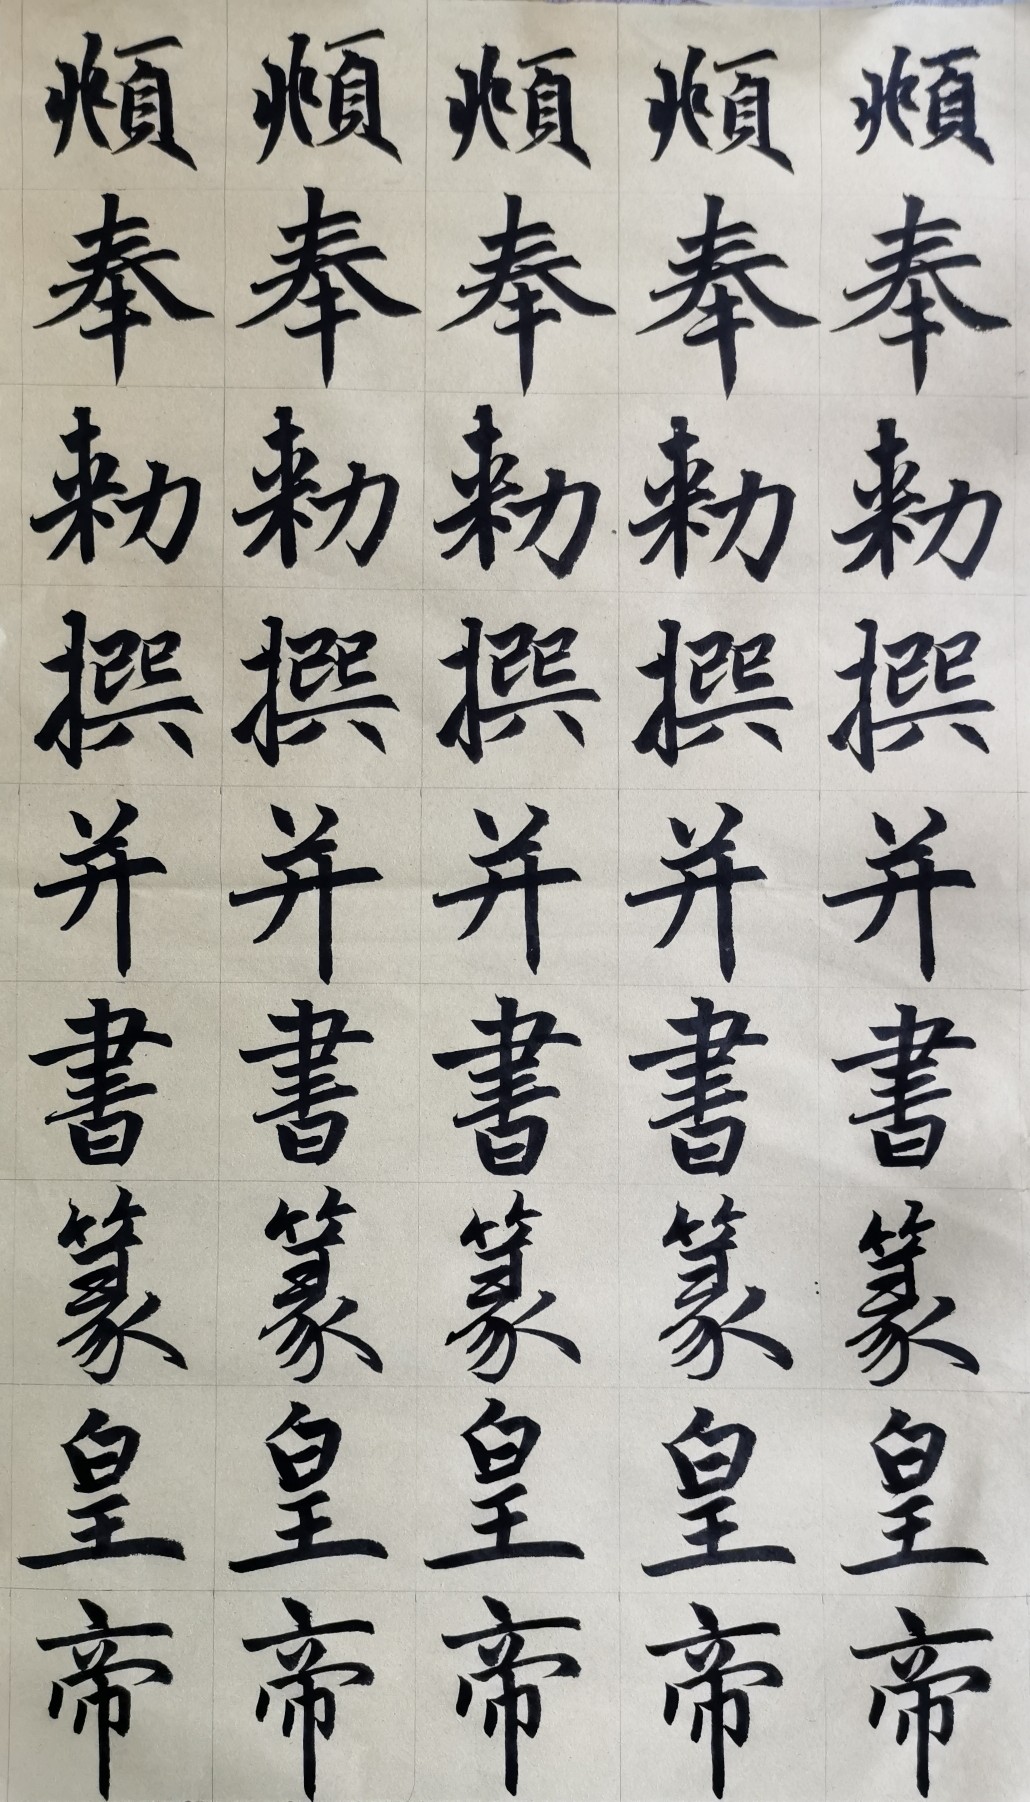 頫奉勑撰并書篆皇帝
頫奉勑撰并書篆皇帝
頫奉勑撰并書篆皇帝
頫奉勑撰并書篆皇帝
頫奉勑撰并書篆皇帝